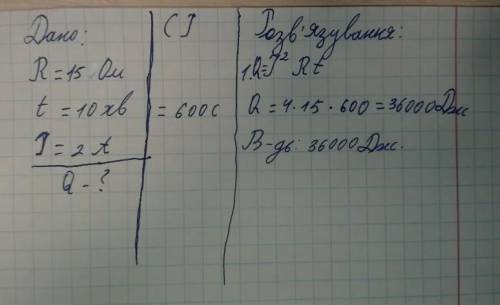 Дано:
R = 15 Ом
t = 10 хв
I = 2 А
Q - ?
СІ
= 600 с
Розв'язування:
1. Q = I² Rt
Q = 4 · 15 · 600 = 36000 Дж
В-дь: 36000 Дж.